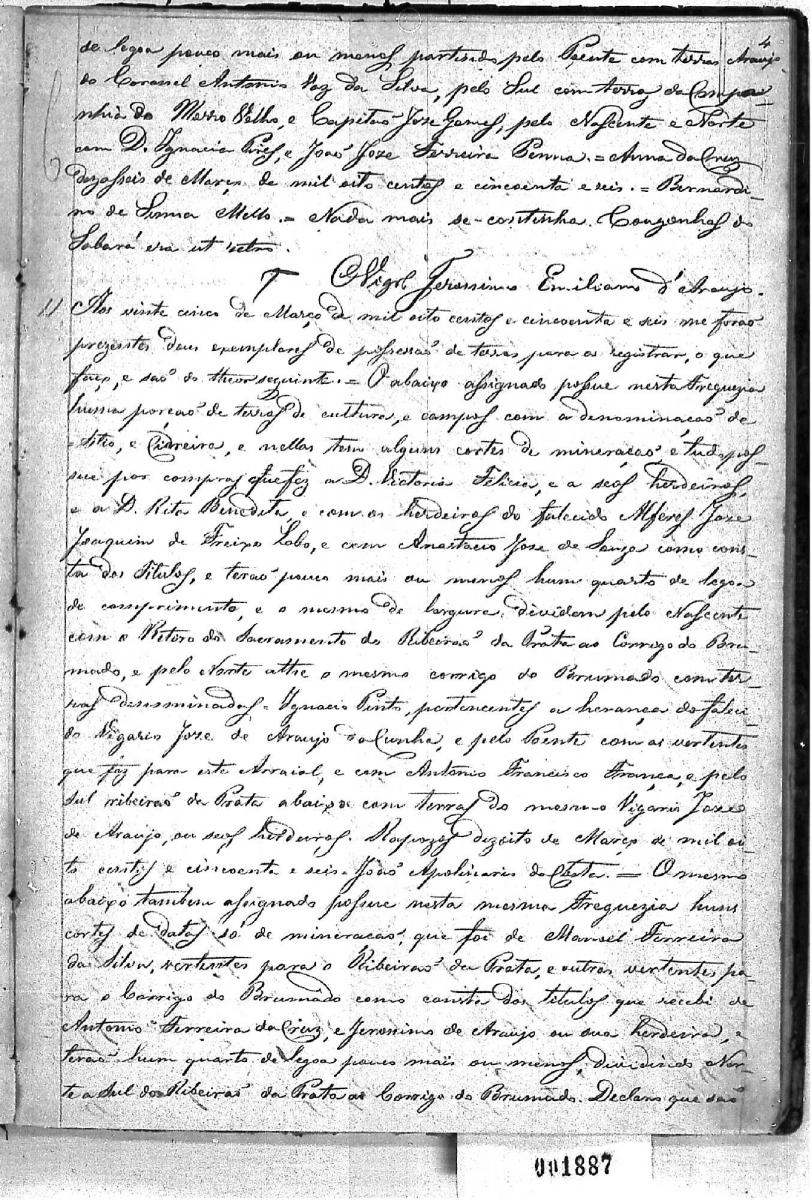 4
Araujo
de legoa pouco mais ou menos partindo pelo Poente com terras
do Coronel Antonio Vaz da Silva, pelo Sul com terras da Compa-
nhia do Morro Velho, e Capitaõ Joze Gomes, pelo Nascente e Norte
com D. Ignacia Pires, e Joaõ Joze Ferreira Penna. = Anna da Cruz
dezasseis de Março de mil oito centos e cincoenta e seis. = Bernardi-
no de Senna Mello. = Nada mais se continha. Congonhas do
Sabará era ut retro.
O Vigrº Jeronimo Emiliano d'Araujo.
11 Aos vinte cinco de Março de mil oito centos e cincoenta e seis me foraõ
prezentes dous exemplares de possessaõ de terras para os registrar, o que
faço, e saõ do theor seguinte. = O abaixo assignado possue nesta Freguezia
huma porçaõ de terras de cultura, e campos com a denominaçaõ de
= Sitio, e Cidreira, e nellas tem alguns cortes de mineraçaõ e tudo pos-
sue por compras que fez a D. Victoria Felicia, e a seos herdeiros,
e a D. Rita Benedita, e com os herdeiros do falecido Alferes Joze
Joaquim de Freixo Lobo, e com Anastacio Joze de Souza como cons-
ta dos Titulos, e teraõ pouco mais ou menos hum quarto de legoa
de comprimento, e o mesmo de largura: dividem pelo Nascente
com o Retiro do Sacramento do Ribeiraõ da Prata ao Corrigo do Bru-
mado, e pelo Norte athe o mesmo corrigo do Brumado com ter-
ras denominadas = Ignacio Pinto, pertencentes a herança do faleci-
do Vigario Joze de Araujo da Cunha, e pelo Poente com as vertentes
que faz para este Arraial, e com Antonio Francisco França, e pelo
Sul ribeiraõ da Prata abaixo com terras do mesmo Vigario Joze
de Araujo, ou seos herdeiros. Rapozos dezoito de Março de mil oi-
to centos e cincoenta e seis. Joaõ Apolinario da Costa. = O mesmo
abaixo tambem assignado possue nesta mesma Freguezia huns
cortes de datas só de mineraçaõ, que foi de Manoel Ferreira
da Silva, vertentes para o Ribeiraõ da Prata, e outras vertentes pa-
ra o Corrigo do Brumado como consta dos titulos que recebi de
Antonio Ferreira da Cruz, e Jeronimo de Araujo ou sua herdeira, e
teraõ hum quarto de legoa pouco mais ou menos, dividindo Nor-
te a Sul do Ribeiraõ da Prata ao Corrigo do Brumado. Declaro que saõ
001887